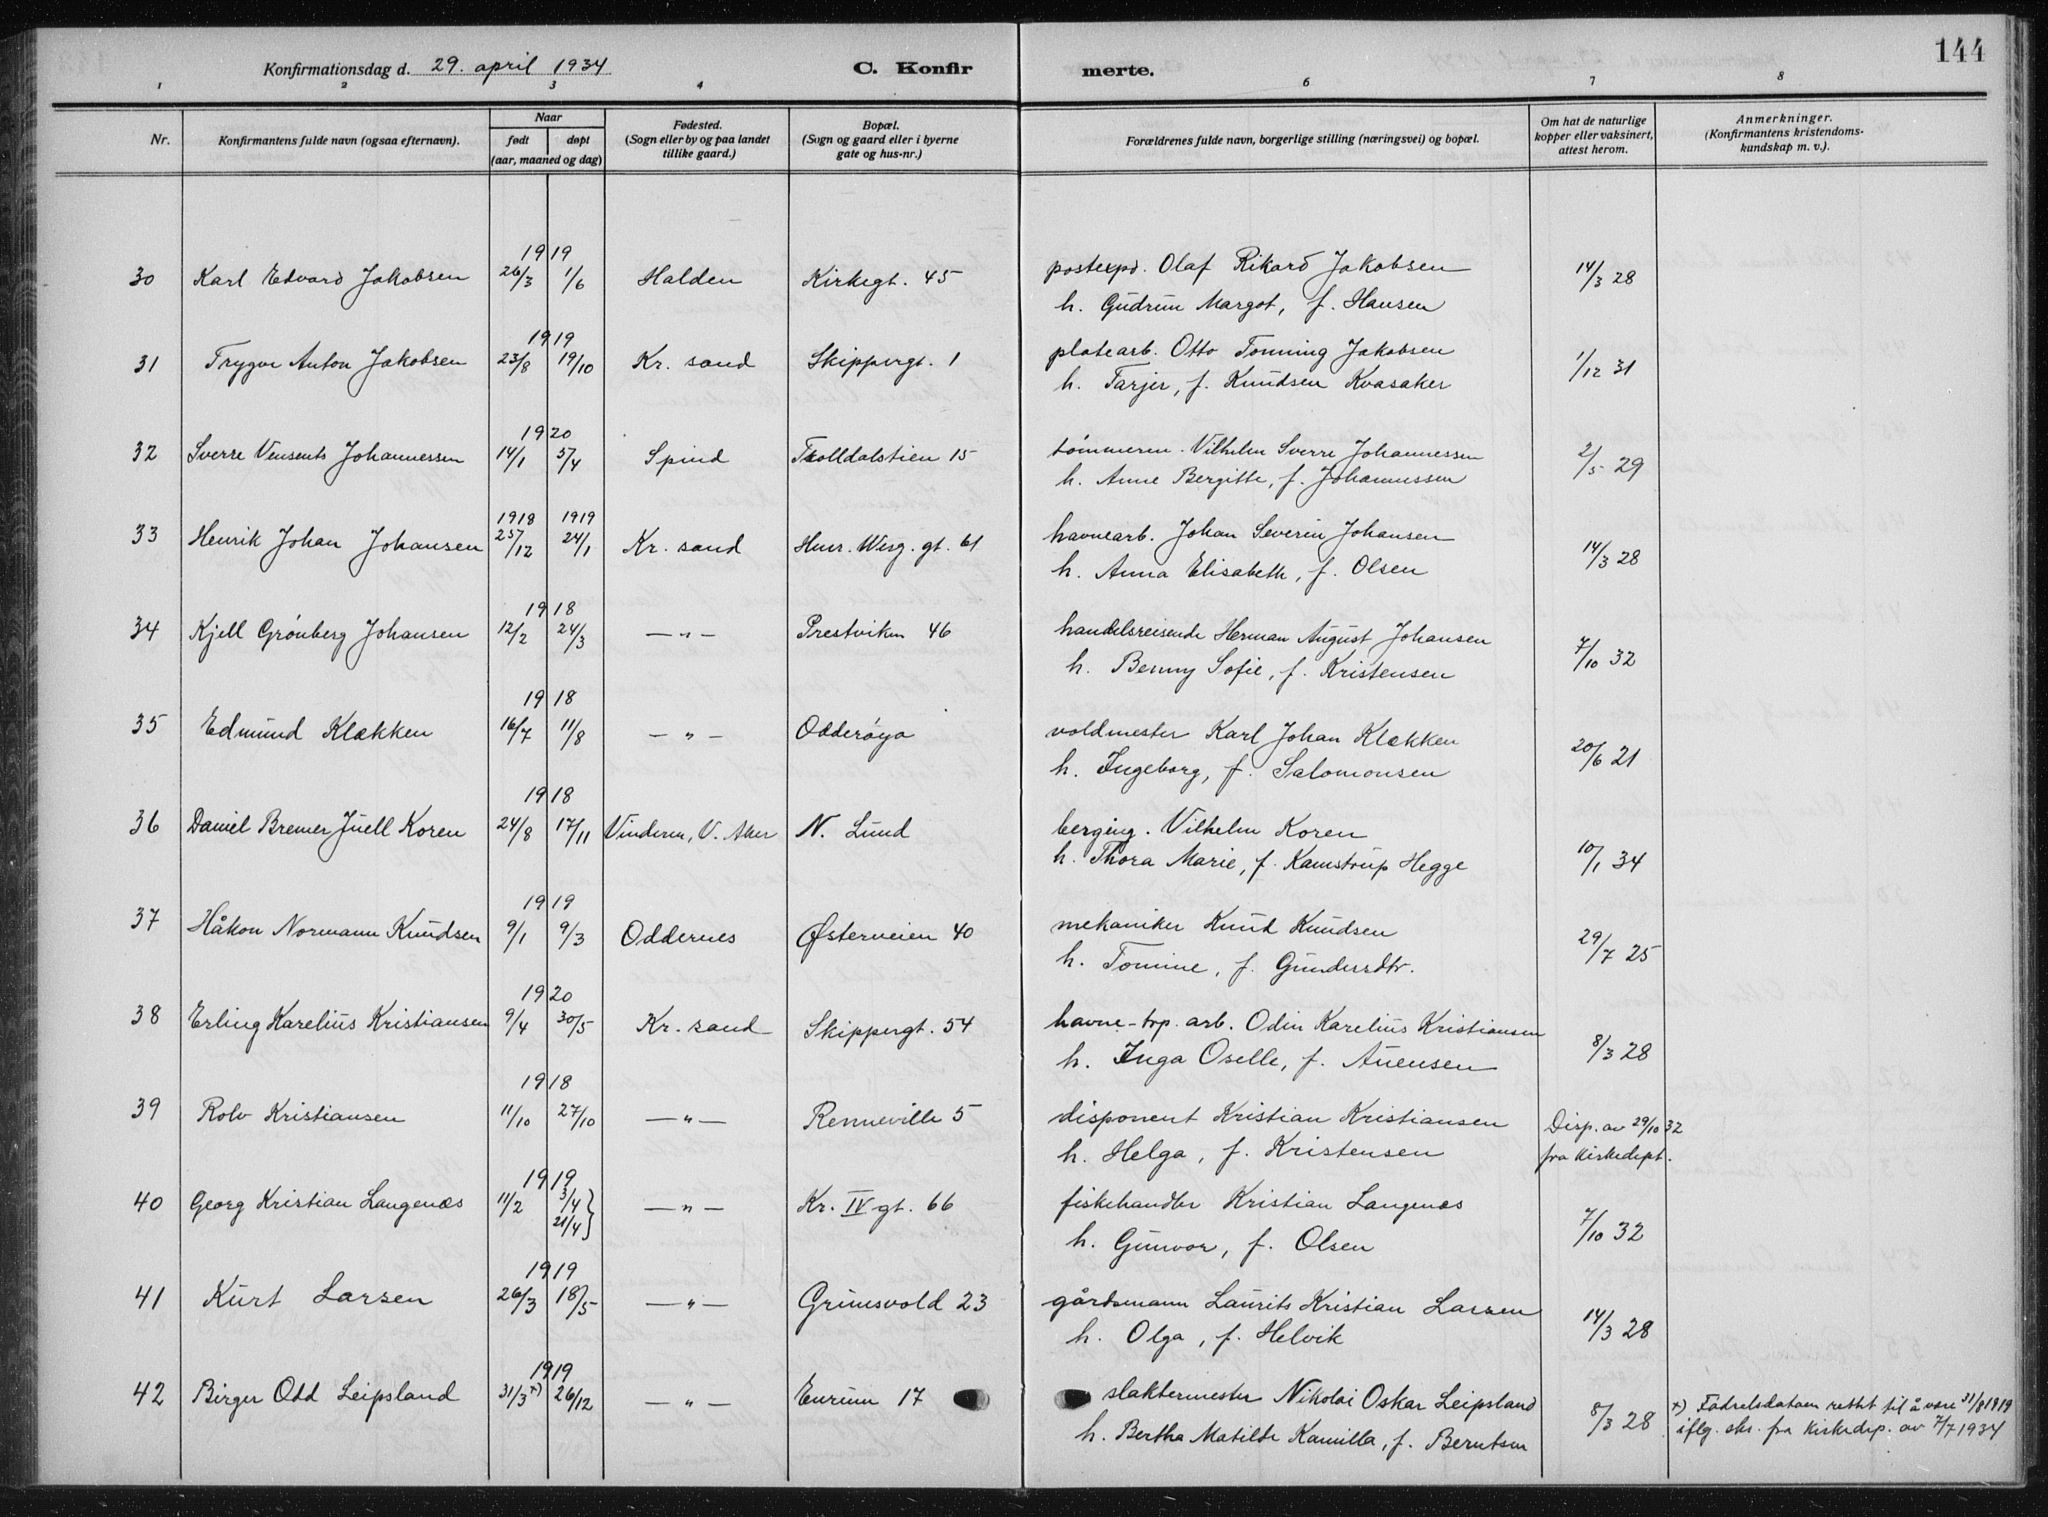 144
Konfirmationsdag d. 29. april 1934 C. Konfirmerte.
1 2 3 4 6 7 8
Nr. Konfirmantens fulde navn (ogsaa efternavn). Naar født døpt (aar, maaned og dag) Fødested. (Sogn eller by og paa landet tillike gaard.) Bopæl. (Sogn og gaard eller i byerne gate og hus-nr.) Forældrenes fulde navn, borgerlige stilling (næringsvei) og bopæl. Om hat de naturlige kopper eller vaksinert, attest herom. Anmerkninger. (Konfirmantens kristendoms-kundskap m. v.).
1919
30 Karl Edvard Jakobsen 26/3 1/6 Halden Kirkegt. 45 postexpd. Olaf Rikard Jakobsen 14/3 28
h. Gudrun Margot, f. Hansen
1919
31 Trygve Anton Jakobsen 23/8 19/10 Kr. sand Skippergt. 1 platearb. Otto Tonning Jakobsen 1/12 31
h. Tarjer, f. Knudsen Kvasaker
1920
32 Sverre Vensents Johannessen 14/1 5/4 Spind Trolldalstien 15 tømmerm. Vilhelm Sverre Johannessen 2/5 29
h. Anne Bergitte, f. Johannessen
1918 1919
33 Henrik Johan Johansen 25/12 24/1 Kr. sand Henr. Werg. gt. 61 havnearb. Johan Severin Johansen 14/3 28
h. Anna Elisabeth, f. Olsen
1918
34 Kjell Grønberg Johansen 12/2 24/3 —"— Prestviken 46 handelsreisende Herman August Johansen 7/10 32
h. Benny Sofie, f. Kristensen
1918
35 Edmund Klækken 16/7 11/8 —"— Odderøya voldmester Karl Johan Klækken 20/6 21
h. Ingeborg, f. Salomonsen
1918
36 Daniel Bremer Juell Koren 24/8 17/11 Vinderen, V. Aker N. Lund berging. Vilhelm Koren 10/1 34
h. Thora Marie, f. Kamstrup Hegge
1919
37 Håkon Normann Knudsen 9/1 9/3 Oddernes Østerveien 40 mekaniker Knud Knudsen 29/7 25
h. Tomine, f. Gundersdtr.
1920
38 Erling Karelius Kristiansen 9/4 30/5 Kr. sand Skippergt. 54 havne-trp. arb. Odin Karelius Kristiansen 8/3 28
h. Inga Oselle, f. Auensen
1918
39 Rolv Kristiansen 11/10 27/10 —"— Renneville 5 disponent Kristian Kristiansen Disp. av 29/10 32
h. Helga, f. Kristensen fra Kirkedept.
1919
40 Georg Kristian Langenæs 11/2 3/4 21/4 } —"— Kr. IV gt. 66 fiskehandler Kristian Langenæs 7/10 32
h. Gunvor, f. Olsen
1919
41 Kurt Larsen 26/3 18/5 —"— Grimsvold 23 gårdsmann Laurits Kristian Larsen 14/3 28
h. Olga, f. Helvik
1919
42 Birger Odd Leipsland 31/3 x) 26/12 —"— Enrum 17 slaktermester Nikolai Oskar Leipsland 8/3 28 x) Fødselsdatoen rettet til å være 31/8 1919
h. Bertha Matilde Kamilla, f. Berntsen iflg. skr. fra Kirkedep. av 7/7 1934